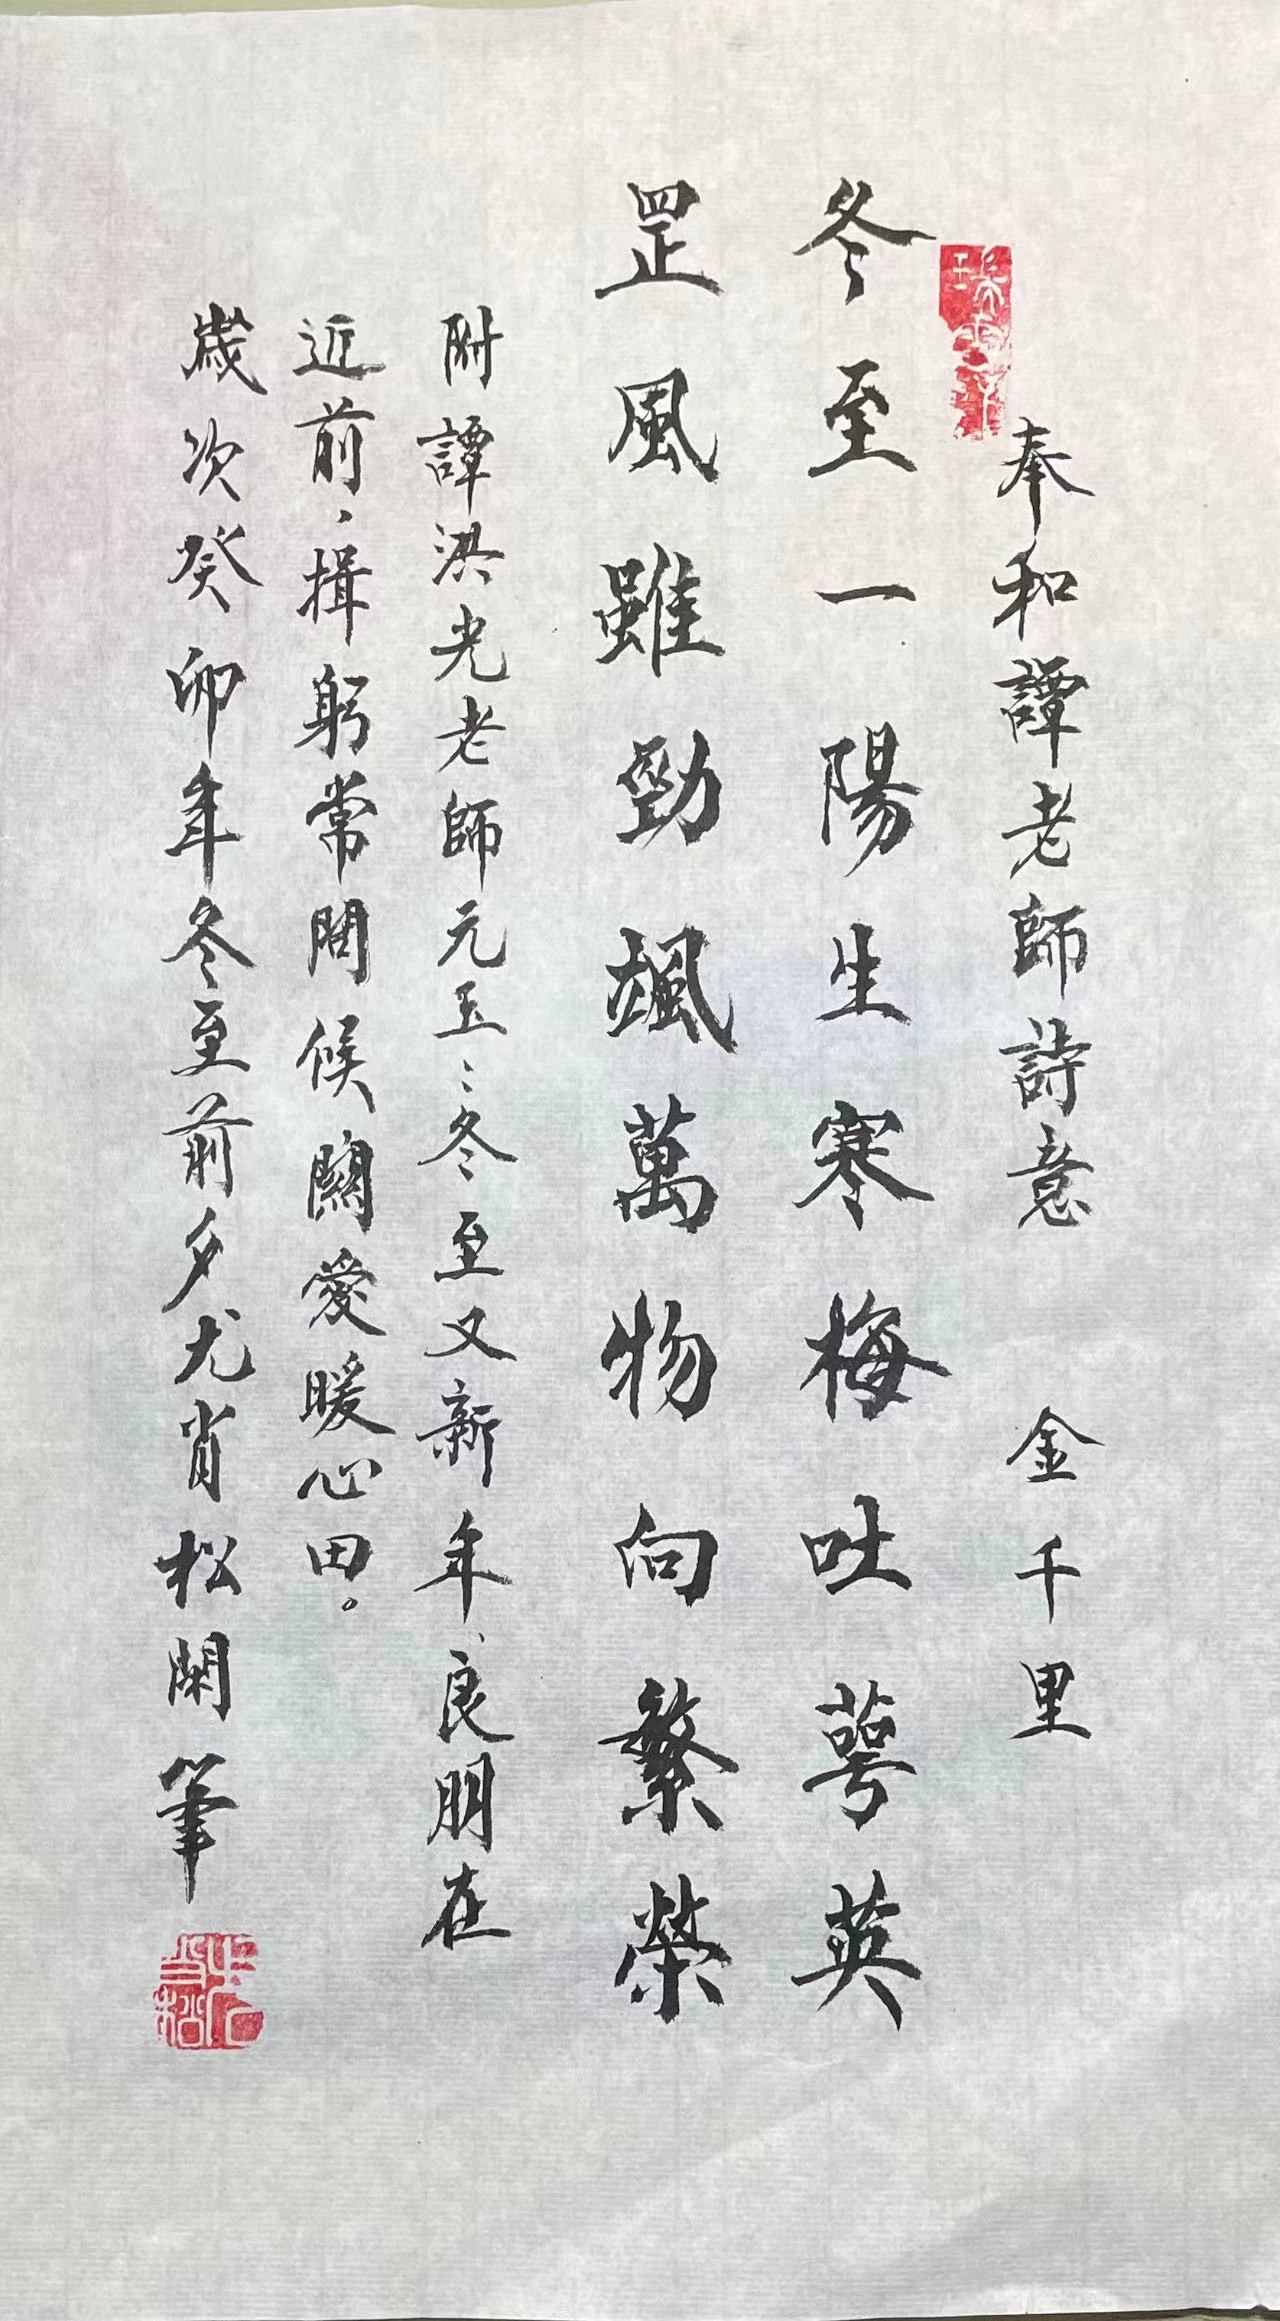 奉和譚老師詩意 金千里
冬至一陽生寒梅吐萼英
罡風雖勁颯萬物向繁榮
附譚洪光老師元玉:冬至又新年、良朋在
近前,揖躬常問候關愛暖心田。
歲次癸卯年冬至前夕尤肖松閑筆